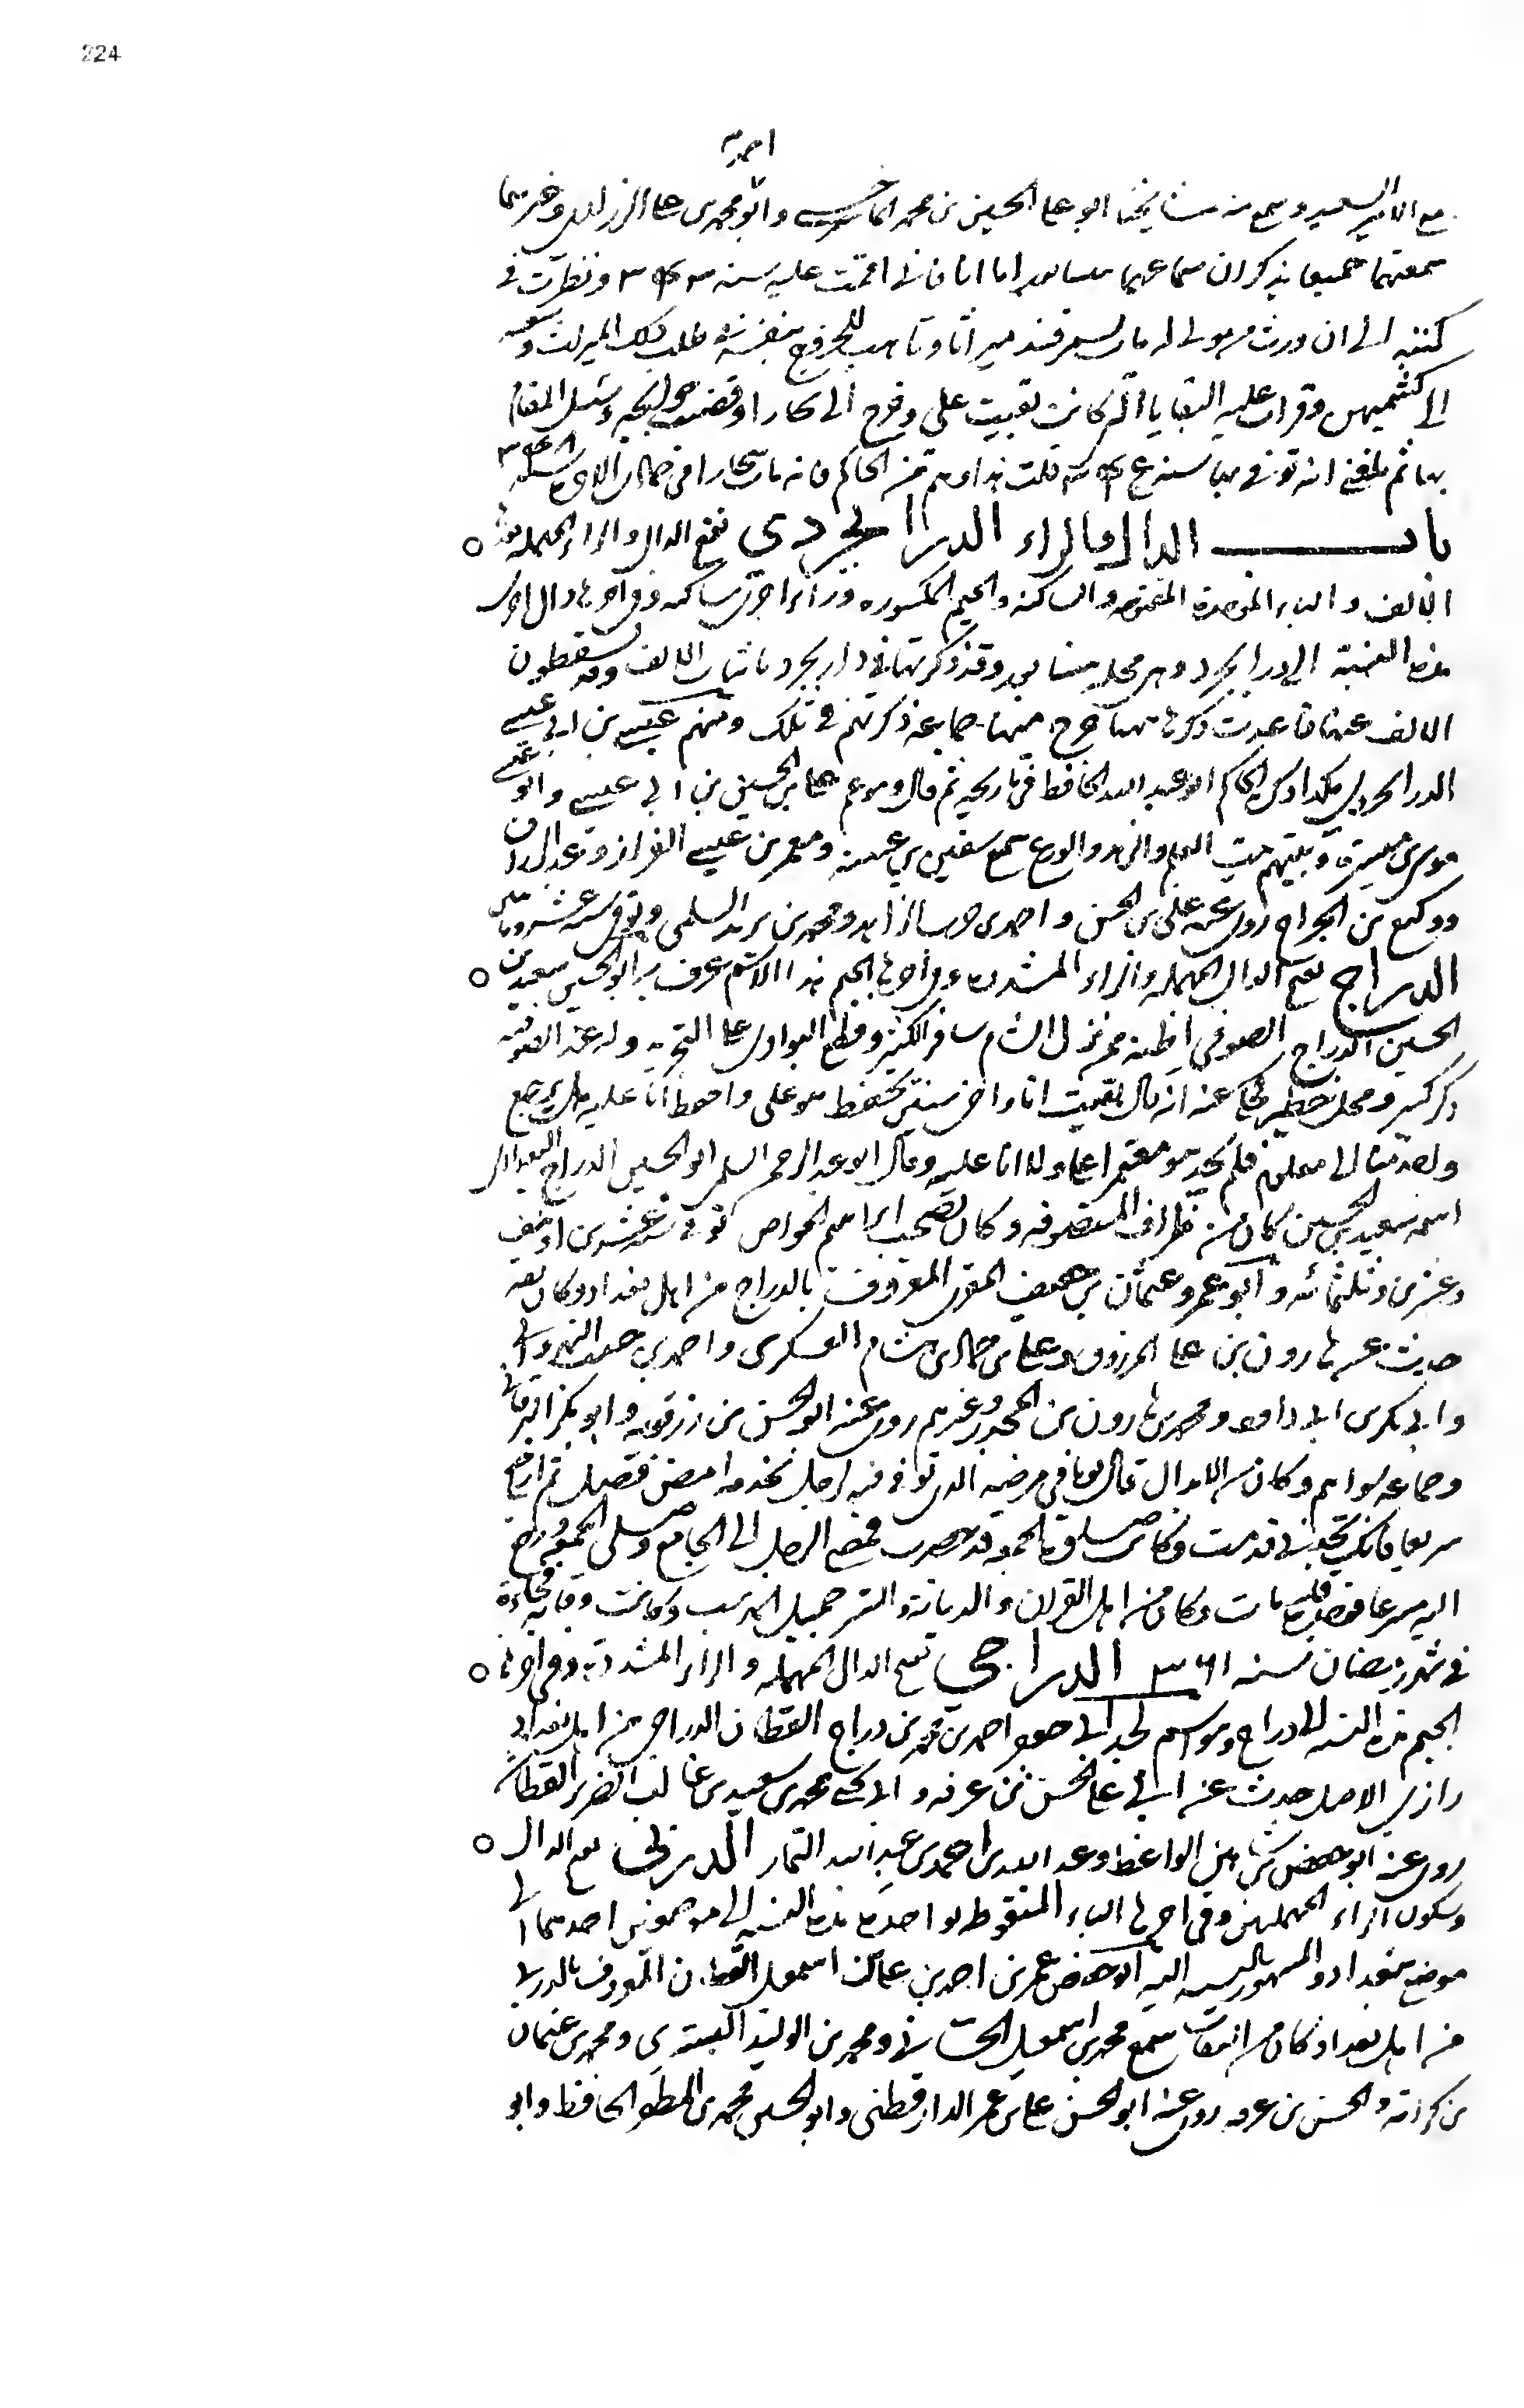 224
مع الامير السعيد وسمع منه مشايخنا ابو علي الحسين بن محمد الماسرجسي وابو محمد بن علي وغيرهما
سمعتهما جميعا يذكران سماعهما اما انا فاني اقمت عليه سنه ونظرت في
كتبه الى ان ورث مولى له مات بسمرقند ميراثا وتاهب للخروج بنفسه في طلب ذلك الميراث
الى كشميهن وقرات عليه البقايا التي كانت بقيت علي وخرج الى بخارا
بها ثم بلغني انه توفي بها سنه قلت هذا وهم من الحاكم فانه مات ببخارا في جمادى الاولى سنه
باب الدال والراء الدرابجردي بفتح الدال والراء المهملة بعدها
الالف والباء الموحدة المفتوحه والساكنه والجيم المكسوره وراء اخرى ساكنه وفي اخرها دال اخرى
هذه النسبة الى درابجرد وهي محلة بنيسابور وقد ذكرتها في دارابجرد باثبات الالف وقد يسقطون
الالف عنها فاعدت ذكرها ههنا خرج منها جماعة ذكرتهم في تلك ومنهم عيسى بن ابي عيسى
الدرابجردي هكذا ذكره الحاكم ابو عبد الله الحافظ في تاريخه ثم قال وهو عم علي بن الحسين بن ابي عيسى وابو عيسى
موسى بن ميسرة وبيتهم بيت العلم والزهد والورع سمع سفين بن عيينه ومعن بن عيسى القزاز
ووكيع بن الجراح روى عنه علي بن الحسن واحمد بن حرب الزاهد ومحمد بن يزيد السلمي وتوفي سنه عشر ومائتين
الدراج بفتح الدال المهملة والراء المشددة وفي اخرها الجيم هذا الاسم عرف به ابو الحسين سعيد بن
الحسين الدراج الصوفي اظنه ممن نزل الشام سافر الكثير وقطع البوادي على التجريد وله عند الصوفيه
ذكر كبير ومحل خطير يحكى عنه انه قال بقيت انا واخي سنتين يحفظ هو علي واحفظ انا عليه هل يرجع
واحد منا الى معلوم فلم يجد هو مغمزا علي ولا انا عليه وقال ابو عبد الرحمن السلمي ابو الحسين الدراج البغدادي
اسمه سعيد بن الحسين كان من ظراف المتصوفه وكان يصحب ابراهيم الخواص توفي سنه عشرين او نيف
وعشرين وثلثمائه وابو عمرو عثمان بن جعفر المقرئ المعروف بالدراج من اهل بغداد وكان ثقه
حدث عن هارون بن علي المزوق وعلي بن حماد بن هشام العسكري واحمد بن حفص النهرواني
وابي بكر بن ابي داود ومحمد بن هارون بن المجدر وغيرهم روى عنه ابو الحسن بن رزقويه وابو بكر البرقاني
وجماعه سواهم وكان من الابدال قال يوما في مرضه الذي توفي فيه لرجل يخدمه امض فصل ثم ارجع
سريعا فانك تجدني قد مت وكانت صلوة الجمعه قد حضرت فمضى الرجل الى الجامع وصلى الجمعة ورجع
اليه مسرعا فوجده قد مات وكان من اهل القران والديانة والستر جميل المذهب وكانت وفاته فجاءة
في شهر رمضان سنه ٣٦١ الدراجي بفتح الدال المهملة والراء المشددة وفي اخرها
الجيم هذه النسبه الى دراج وهو اسم لجد ابي جعفر احمد بن محمد بن دراج القطان الدراجي من اهل بغداد
رازي الاصل حدث عن ابي علي الحسن بن عرفه وابي يحيى محمد بن سعيد بن غالب الضرير القطان
روى عنه ابو حفص بن شاهين الواعظ وعبد الله بن احمد بن عبد الله التمار الدربي بفتح الدال
وسكون الراء المهملتين وفي اخرها الباء المنقوطه بواحدة هذه النسبه الى موضعين احدهما الى
موضع ببغداد والمشهور بالنسبه اليه ابو حفص عمر بن احمد بن علي بن اسمعيل القطان المعروف بالدربي
من اهل بغداد كان من الثقات سمع محمد بن اسمعيل الحساني ومحمد بن الوليد البسري ومحمد بن عثمان
بن كرامة والحسن بن عرفه روى عنه ابو الحسن علي بن عمر الدارقطني وابو الحسين محمد بن المظفر الحافظ وابو